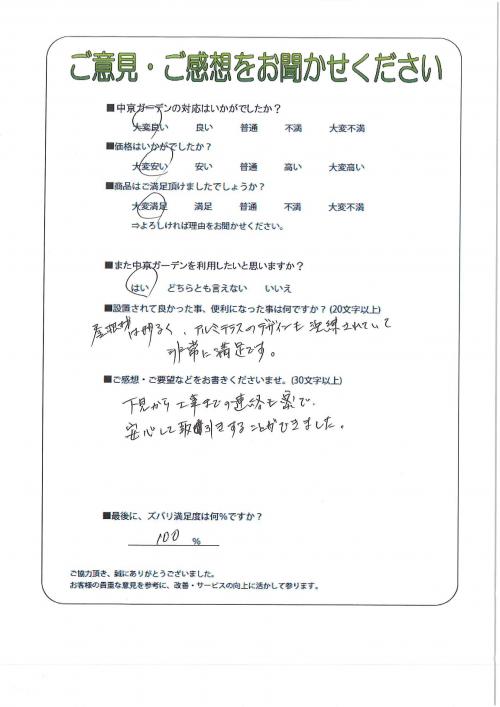 ご意見・ご感想をお聞かせください
■中京ガーデンの対応はいかがでしたか？
大変良い 良い 普通 不満 大変不満
■価格はいかがでしたか？
大変安い 安い 普通 高い 大変高い
■商品はご満足頂けましたでしょうか？
大変満足 満足 普通 不満 大変不満
⇒よろしければ理由をお聞かせください。
■また中京ガーデンを利用したいと思いますか？
はい どちらとも言えない いいえ
■設置されて良かった事、便利になった事は何ですか？(20文字以上)
屋根材は明るく、アルミテラスのデザインも洗練されていて
非常に満足です。
■ご感想・ご要望などをお書きくださいませ。(30文字以上)
下見から工事までの連絡も密で、
安心して取引きすることができました。
■最後に、ズバリ満足度は何％ですか？
100 %
ご協力頂き、誠にありがとうございました。
お客様の貴重な意見を参考に、改善・サービスの向上に活かして参ります。